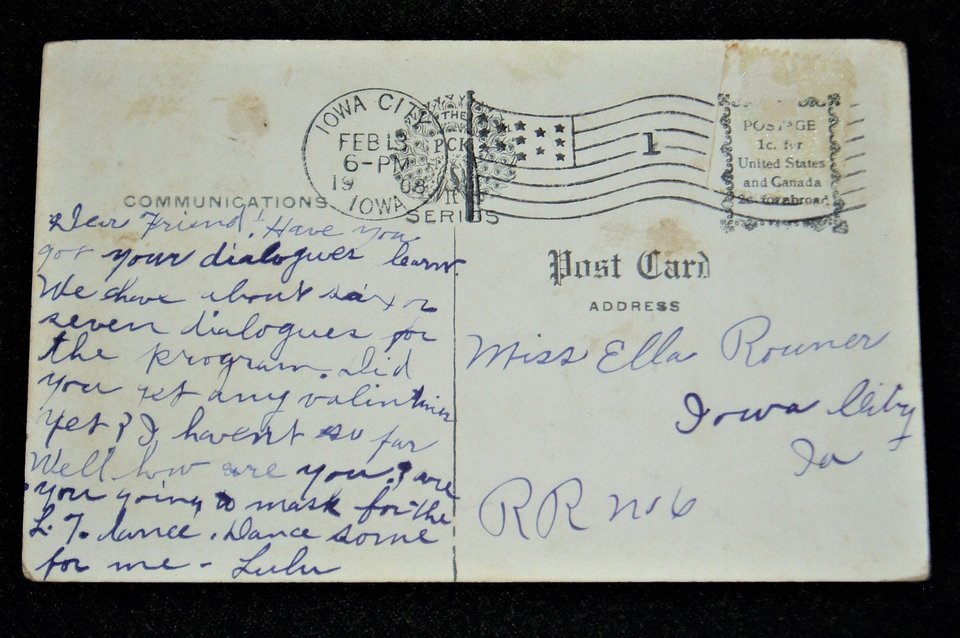 IOWA CITY
FEB 13
6-PM
19 08
IOWA
THE
PCK
SERIES
1
POSTAGE
1c. for
United States
and Canada
2c. for abroad
COMMUNICATIONS
Post Card
ADDRESS
Dear Friend! Have you
got your dialogues learnt.
We have about six or
seven dialogues for
the program. Did
you get any valintines
yet? I havent so far
Well how are you? are
you going to mask for the
L. T. dance. Dance some
for me - Lulu
Miss Ella Rouner
Iowa City
Ia
RR No 6